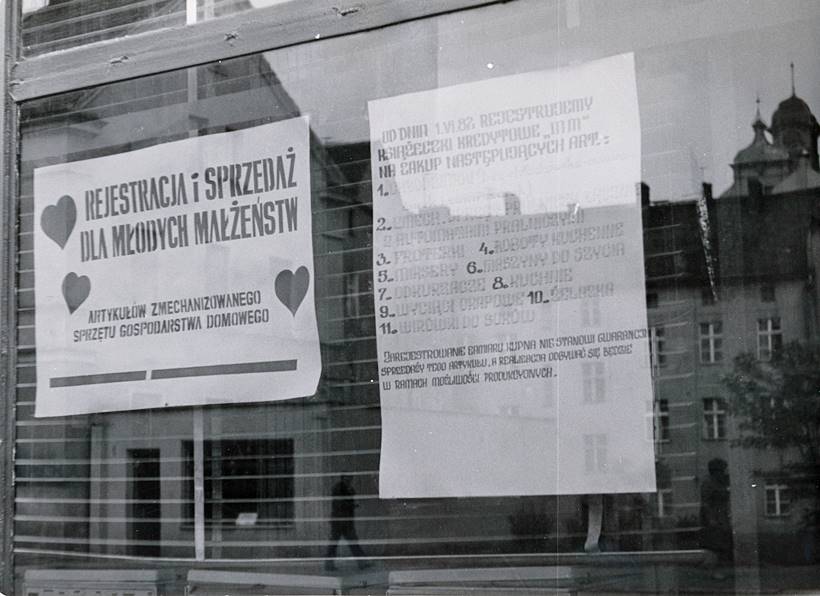 REJESTRACJA i SPRZEDAŻ
DLA MŁODYCH MAŁŻEŃSTW
ARTYKUŁÓW ZMECHANIZOWANEGO
SPRZĘTU GOSPODARSTWA DOMOWEGO
OD DNIA 1.VI.82 REJESTRUJEMY
KSIĄŻECZKI KREDYTOWE „MM"
NA ZAKUP NASTĘPUJĄCYCH ART.:
1.
2.
Z AUTOMATAMI PRALNICZYMI
3. FROTERKI 4. ROBOTY KUCHENNE
5. MIKSERY 6. MASZYNY DO SZYCIA
7. ODKURZACZE 8. KUCHNIE
9. WYCIĄGI OKAPOWE 10. ŻELAZKA
11. WIRÓWKI DO SOKÓW
ZAREJESTROWANIE ZAMIARU KUPNA NIE STANOWI GWARANCJI
SPRZEDAŻY TEGO ARTYKUŁU, A REALIZACJA ODBYWAĆ SIĘ BĘDZIE
W RAMACH MOŻLIWOŚCI PRODUKCYJNYCH.